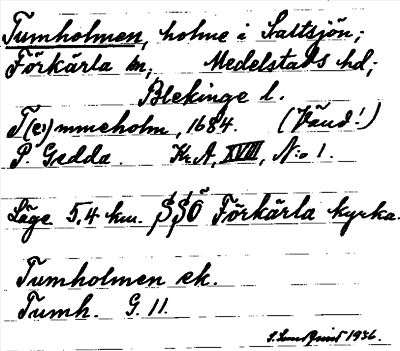 Tumholmen, holme i Saltsjön;
Förkärla sn; Medelstads hd;
Blekinge l.
T(e)mmeholm, 1684. (Vänd!)
P. Gedda. Kr.A, XVIII, N:o 1.
Läge 5,4 km. SSO Förkärla kyrka.
Tumholmen ek.
Tumh. G. 11.
1936.